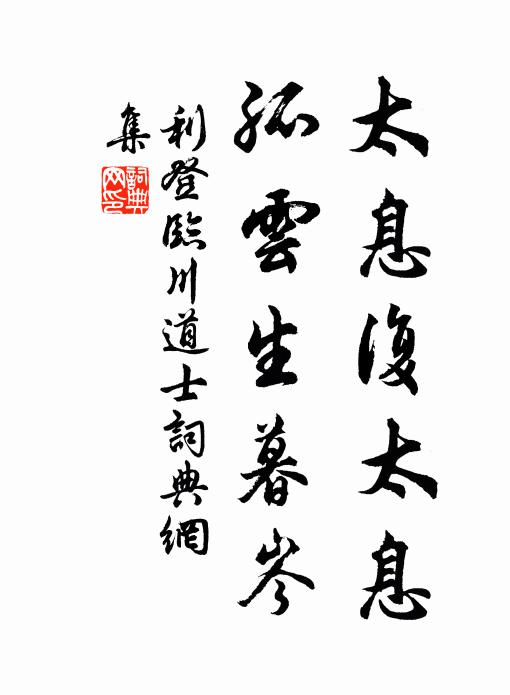 太息復太息
孤雲生暮岑
利登臨川道士詞典網
集
詞典網印